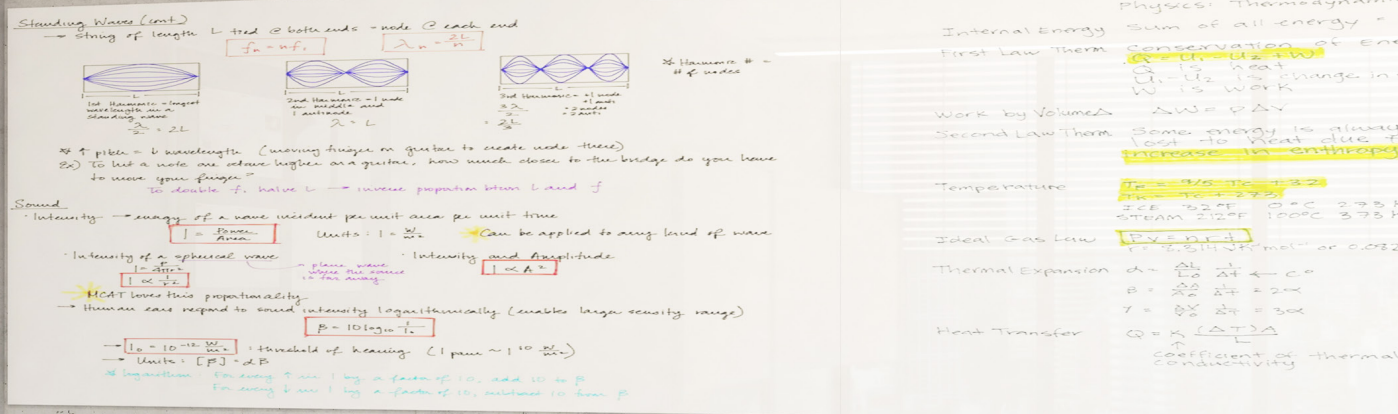 Standing Waves (cont)
→ string of length L tied @ both ends - node @ each end
fn = nf1
λn = 2L/n
L
L
L
1st Harmonic - longest
wavelength in a
standing wave
λ/2 = 2L
2nd Harmonic - 1 node
in middle and
1 antinode
λ = L
3rd Harmonic - 1 node
+1 anti
= 2 nodes
= 2 anti
2L/3
* Harmonic # =
# of nodes
** ↑ pitch = ↓ wavelength (moving finger on guitar to create node there)
Ex) To hit a note one octave higher on a guitar, how much closer to the bridge do you have
to move your finger?
To double f, halve L → inverse proportion btwn L and f
Sound
· Intensity → energy of a wave incident per unit area per unit time
I = Power/Area
Units: I = W/m²
* Can be applied to any kind of wave
· Intensity of a spherical wave
I = P/4πr²
I ∝ 1/r²
- plane wave
where the source
is far away
· Intensity and Amplitude
I ∝ A²
MCAT loves this proportionality
→ Human ears respond to sound intensity logarithmically (enables larger sensity range)
β = 10 log10 I/I0
→ I0 = 10⁻¹² W/m² : threshold of hearing (I pain ~
→ Units: [β] = dB
* logarithm: For every ↑ in I by a factor of 10, add 10 to β
For every ↓ in I by a factor of 10, subtract 10 from β
Physics: Thermodynami
Internal Energy Sum of all energy =
First Law Therm Conservation of Ene
Q = U1 - U2 + W
Q is heat
U1 - U2 is change in
W is work
Work by Volume Δ ΔW = PΔV
Second Law Therm Some energy is alway
lost to heat due t
increase in enthropy
Temperature TF = 9/5 Tc + 32
TK = Tc + 273
ICE 32°F 0°C 273
STEAM 212°F 100°C 373
Ideal Gas Law PV = nrt
mol or 0.082
Thermal Expansion α = ΔL/L0 1/Δt ← C°
β = ΔA/A0 1/Δt = 2α
γ = ΔV/V0 1/Δt = 3α
Heat Transfer Q = K (ΔT)A/L
coefficient of thermal
conductivity